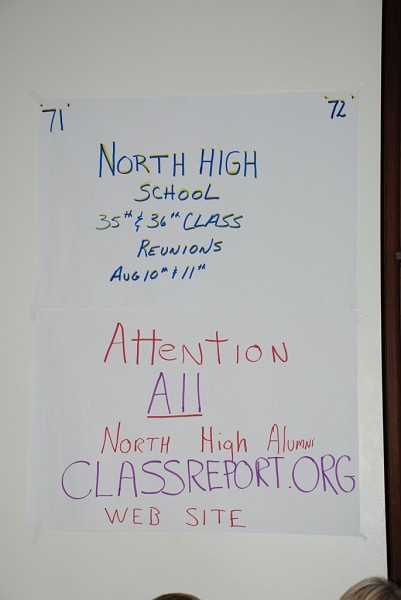 71 72
NORTH HIGH
SCHOOL
35th & 36th CLASS
REUNIONS
AUG 10th & 11th
Attention
All
North High Alumni
CLASSREPORT.ORG
WEB SITE